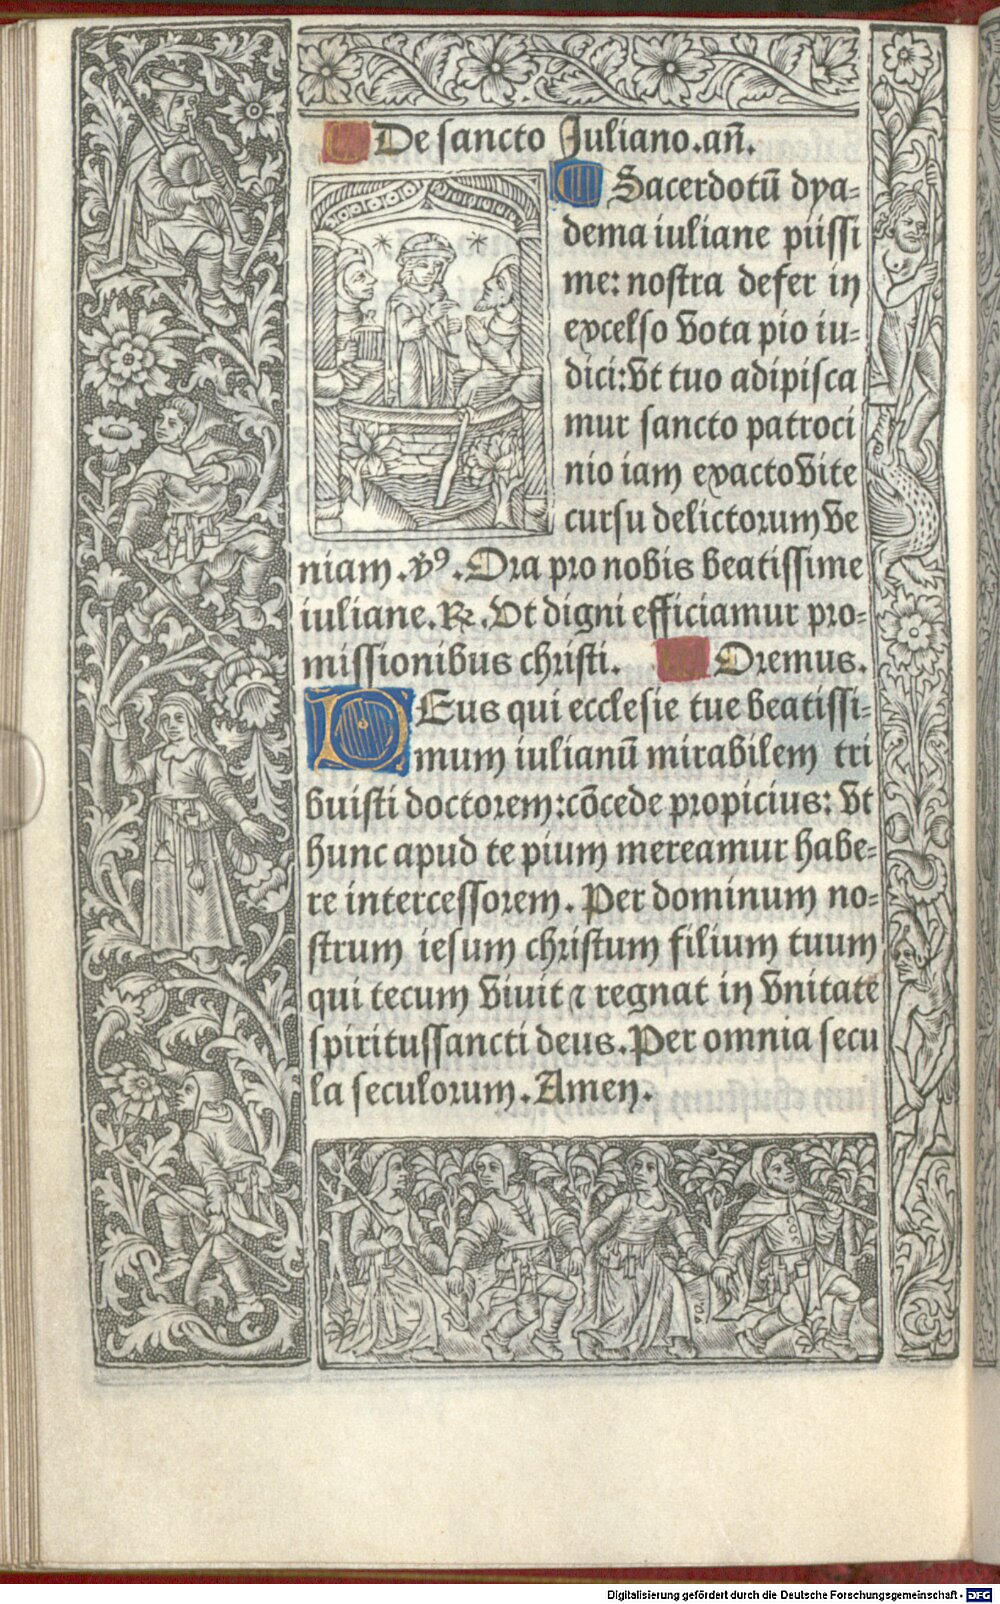 De sancto Juliano.añ.
Sacerdotū dya-
dema iuliane piissi
me: nostra defer in
excelso vota pio iu-
dici: vt tuo adipisca
mur sancto patroci
nio iam exacto vite
cursu delictorum ve
niam. ꝟ⁹. Ora pro nobis beatissime
iuliane. ℟. Vt digni efficiamur pro-
missionibus christi. Oremus.
DEus qui ecclesie tue beatissi-
mum iulianū mirabilem tri
buisti doctorem: cōcede propicius: vt
hunc apud te pium mereamur habe-
re intercessorem. Per dominum no-
strum iesum christum filium tuum
qui tecum viuit ⁊ regnat in vnitate
spiritussancti deus. Per omnia secu
la seculorum. Amen.
Digitalisierung gefördert durch die Deutsche Forschungsgemeinschaft - DFG